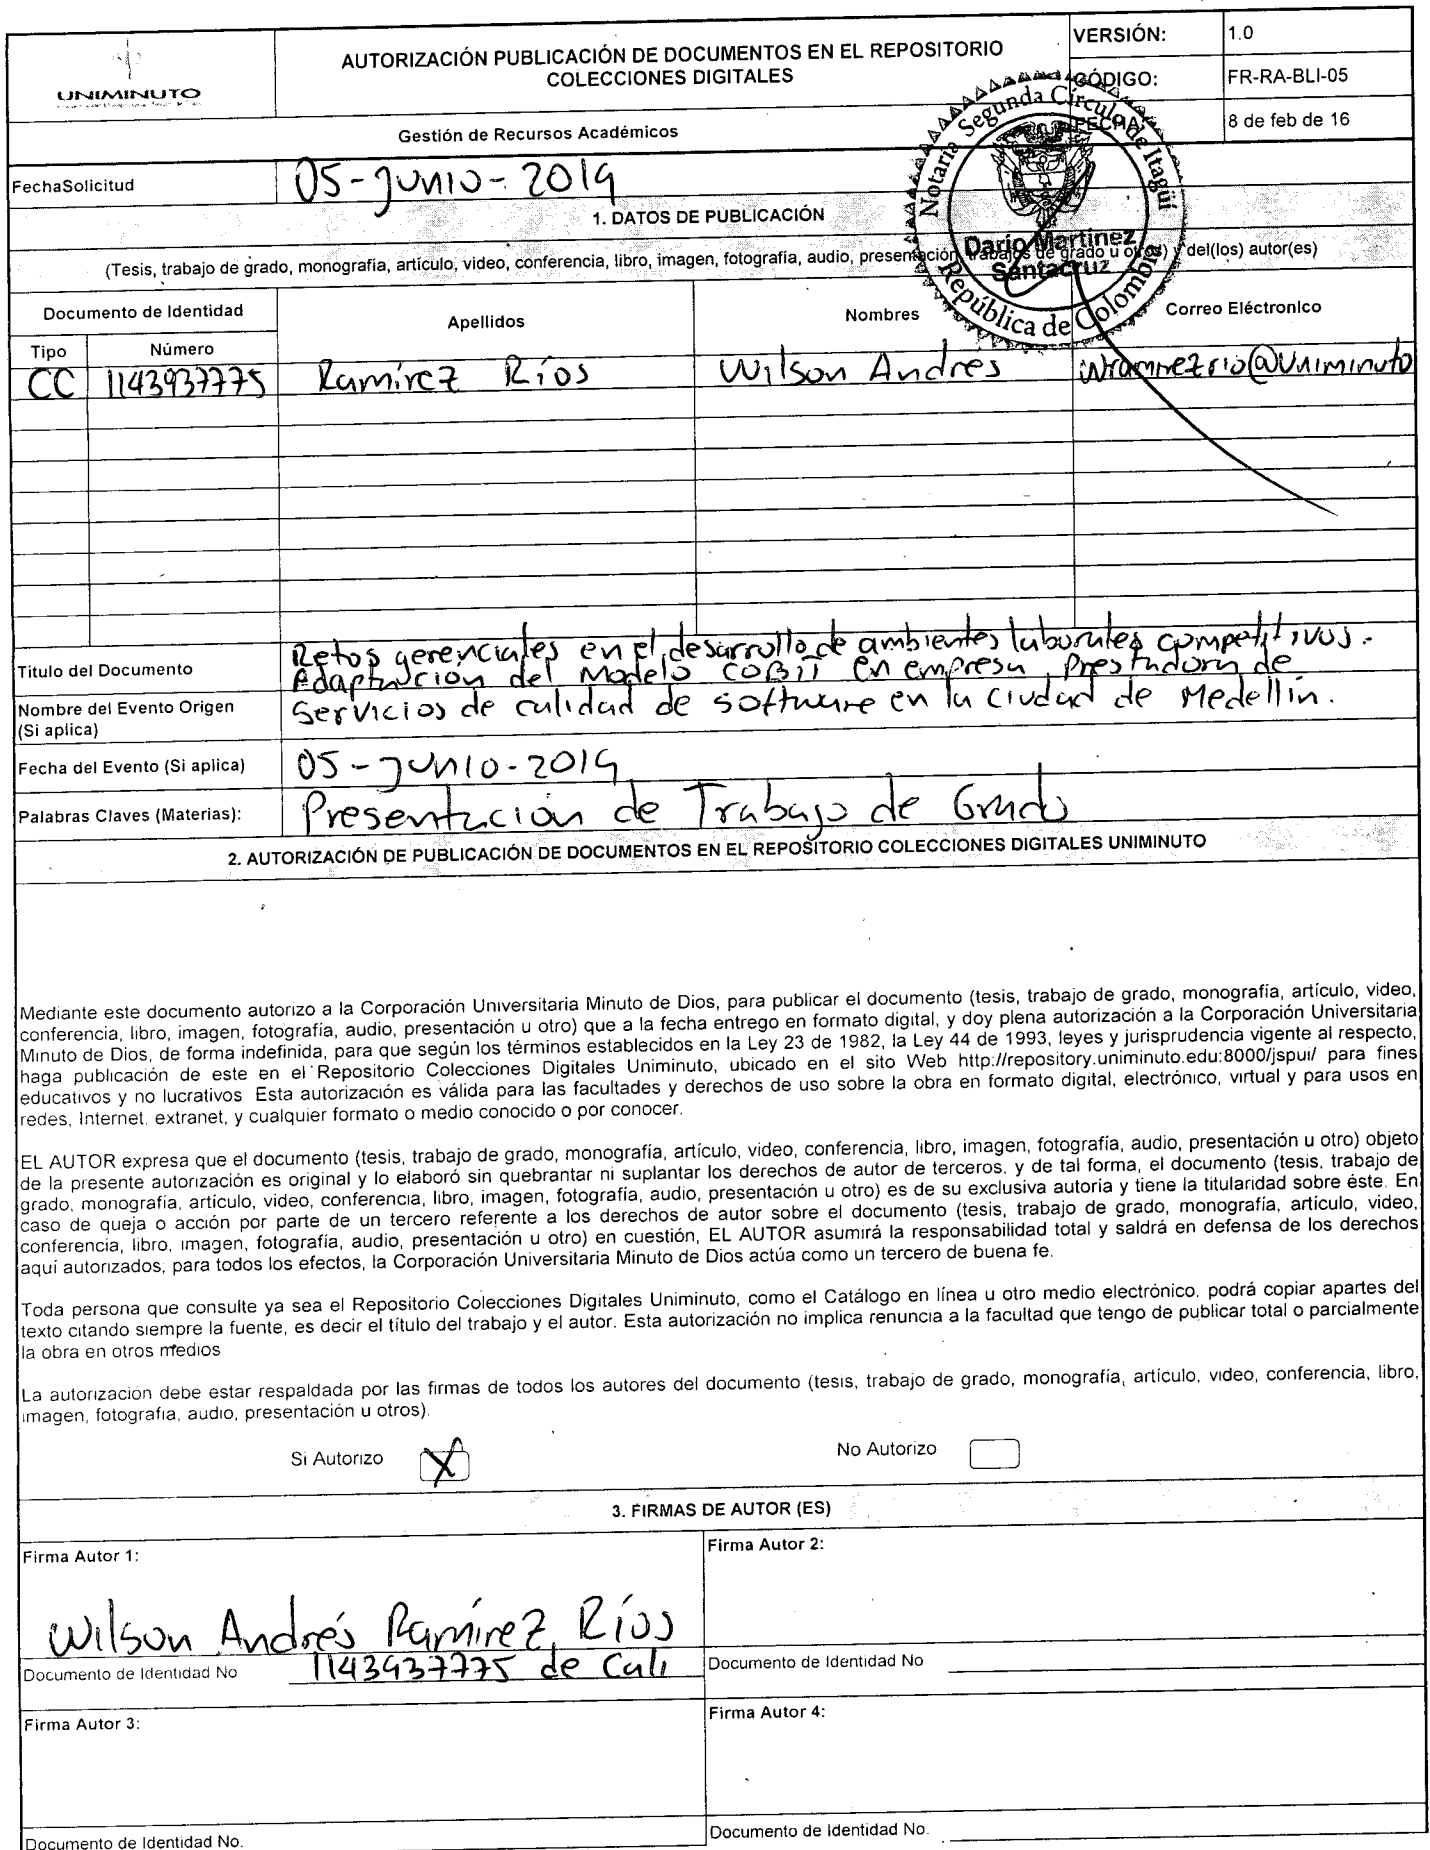 UNIMINUTO
AUTORIZACIÓN PUBLICACIÓN DE DOCUMENTOS EN EL REPOSITORIO
COLECCIONES DIGITALES
Gestión de Recursos Académicos
VERSIÓN: 1.0
CÓDIGO: FR-RA-BLI-05
FECHA: 8 de feb de 16
Notaría Segunda Círculo de Itagüí
Darío Martínez
Santacruz
República de Colombia
FechaSolicitud 05-Junio-2019
1. DATOS DE PUBLICACIÓN
(Tesis, trabajo de grado, monografía, artículo, video, conferencia, libro, imagen, fotografía, audio, presentación, trabajos de grado u otros) y del(los) autor(es)
Documento de Identidad Apellidos Nombres Correo Eléctronico
Tipo Número
CC 1143937775 Ramírez Ríos Wilson Andrés wramirezrio@Uniminuto
Título del Documento
Retos gerenciales en el desarrollo de ambientes laborales competitivos.
Adaptación del Modelo COBIT en empresa prestadora de
Nombre del Evento Origen
(Si aplica)
Servicios de calidad de software en la ciudad de Medellín.
Fecha del Evento (Si aplica) 05-Junio-2019
Palabras Claves (Materias): Presentación de Trabajo de Grado
2. AUTORIZACIÓN DE PUBLICACIÓN DE DOCUMENTOS EN EL REPOSITORIO COLECCIONES DIGITALES UNIMINUTO
Mediante este documento autorizo a la Corporación Universitaria Minuto de Dios, para publicar el documento (tesis, trabajo de grado, monografía, artículo, video,
conferencia, libro, imagen, fotografía, audio, presentación u otro) que a la fecha entrego en formato digital, y doy plena autorización a la Corporación Universitaria
Minuto de Dios, de forma indefinida, para que según los términos establecidos en la Ley 23 de 1982, la Ley 44 de 1993, leyes y jurisprudencia vigente al respecto,
haga publicación de este en el Repositorio Colecciones Digitales Uniminuto, ubicado en el sitio Web http://repository.uniminuto.edu:8000/jspui/ para fines
educativos y no lucrativos Esta autorización es válida para las facultades y derechos de uso sobre la obra en formato digital, electrónico, virtual y para usos en
redes, Internet, extranet, y cualquier formato o medio conocido o por conocer.
EL AUTOR expresa que el documento (tesis, trabajo de grado, monografía, artículo, video, conferencia, libro, imagen, fotografía, audio, presentación u otro) objeto
de la presente autorización es original y lo elaboró sin quebrantar ni suplantar los derechos de autor de terceros, y de tal forma, el documento (tesis, trabajo de
grado, monografía, artículo, video, conferencia, libro, imagen, fotografía, audio, presentación u otro) es de su exclusiva autoría y tiene la titularidad sobre éste. En
caso de queja o acción por parte de un tercero referente a los derechos de autor sobre el documento (tesis, trabajo de grado, monografía, artículo, video,
conferencia, libro, imagen, fotografía, audio, presentación u otro) en cuestión, EL AUTOR asumirá la responsabilidad total y saldrá en defensa de los derechos
aquí autorizados; para todos los efectos, la Corporación Universitaria Minuto de Dios actúa como un tercero de buena fe.
Toda persona que consulte ya sea el Repositorio Colecciones Digitales Uniminuto, como el Catálogo en línea u otro medio electrónico, podrá copiar apartes del
texto citando siempre la fuente, es decir el título del trabajo y el autor. Esta autorización no implica renuncia a la facultad que tengo de publicar total o parcialmente
la obra en otros medios
La autorización debe estar respaldada por las firmas de todos los autores del documento (tesis, trabajo de grado, monografía, artículo, video, conferencia, libro,
imagen, fotografía, audio, presentación u otros).
Si Autorizo X No Autorizo
3. FIRMAS DE AUTOR (ES)
Firma Autor 1: Firma Autor 2:
Wilson Andrés Ramírez Ríos
Documento de Identidad No 1143937775 de Cali Documento de Identidad No
Firma Autor 3: Firma Autor 4:
Documento de Identidad No. Documento de Identidad No.